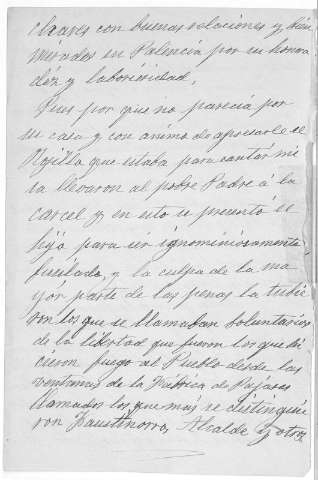 claves con buenas relaciones y bien
mirados en Palencia por su honra
déz y laboriosidad,
Pues por que no parecia por
su casa y con animo de apresarle el
que estaba para cantar mi
sa llevaron al pobre Padre á la
carcel y en esto se presentó el
hijo para ser ignominiosamente
fusilado, y la culpa de la ma
yór parte de las penas la tubie
ron los que se llamaban voluntarios
de la libertad que fueron los que hi
cieron fuego al Pueblo desde las
ventanas de la Fabrica de Pajares
llamados los que más se distinguie
ron Alcalde y otros